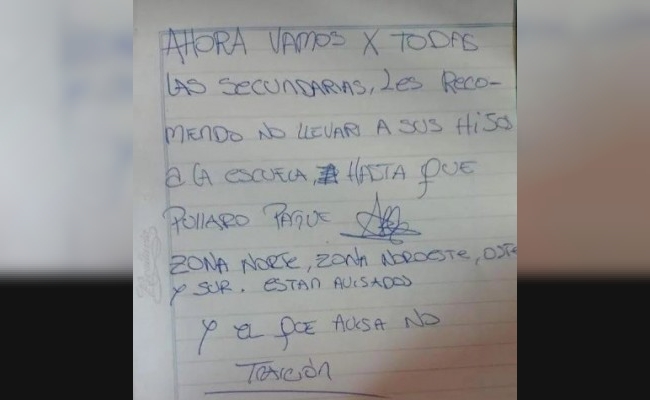 AHORA VAMOS X TODAS
LAS SECUNDARIAS, LES RECO-
MENDO NO LLEVAR A SUS HiJOS
a LA ESCUELA, HASTA QUE
PULLARO PAGUE
ZONA NORTE, ZONA NOROESTE, OSTE
y SUR. ESTAN AVISADOS
y EL QUE AVISA NO
TRAICIÓN